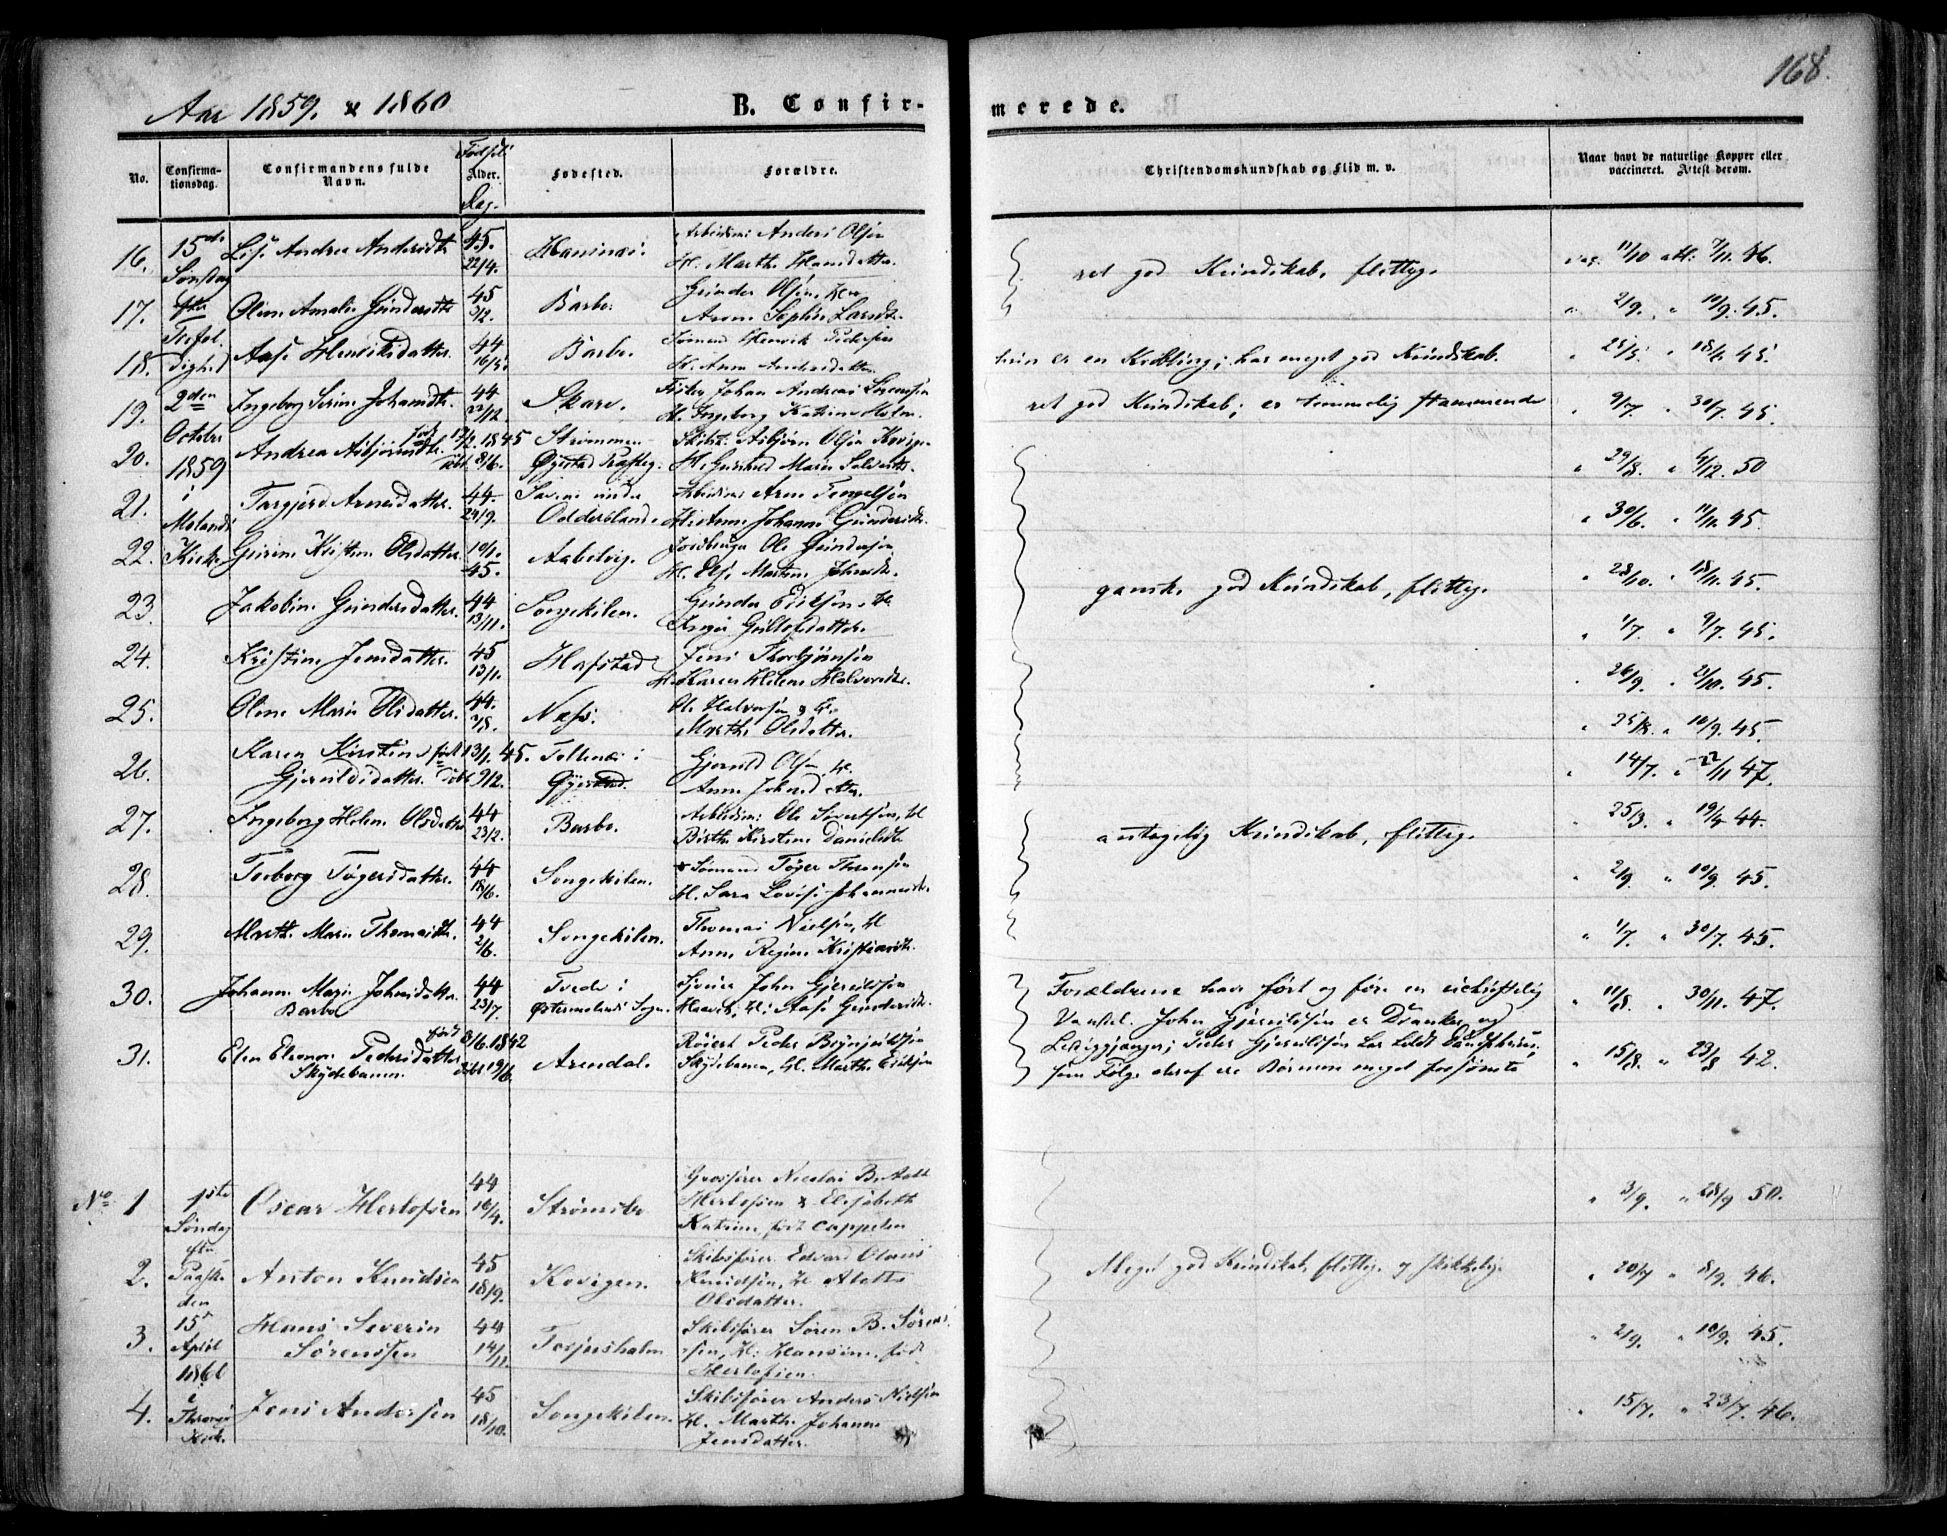 168.
Aar 1859. & 1860
B. Confir-
merede.
No.
Confirma-
tionsdag.
Confirmandens fulde
Navn.
Fødsels
Alder.
Dag.
Fødested.
Forældre.
Christendomskundskab og Flid m. v.
Naar havt de naturlige Kopper eller
vaccineret. Attest derom.
16. 15de Lise Andrea Andersdtr. 45. Arbeidsm: Anders Olsen
Søndag 22/4. H. Marthe Hansdatter
ret god Kundskab, flittig. 11/10 att: 7/11. 46.
17. efter Oline Amalie Gundersdtr 45 Barbo Gunder Olsen, H
3/2. Anne Sophie Larsdtr. 2/9. " 10/9. 45.
18. Trefol- Aase Henriksdatter. 44 Barbo. Sømand Henrik Pedersen
digh. 16/5. H. Anne Andersdatter
hun er en Krøbling; har meget god Kundskab. " 18/6. 45
19. 2den Ingeborg Serine Johansdtr. 44 Skare. Johan Andreas Sørensen
22/12 H. Ingeborg Katrine Holm.
ret god Kundskab; er temmelig stammende " 9/7 " 30/7. 45.
20. October Andrea Asbjørnsdtr. født 17/2. 1845 Strømmen Skibsk. Asbjørn Olsen Kovigen
1859 døbt 8/6. Øyestad Præsteg. H. Gunhild Marie
" 29/8. " 4/12. 50
21. i Targjerd Arnesdatter. 44. Arbeidsm: Arne Tengelsen
Molands 29/9. Oddersland. H: Anne Johanne Gundersdtr.
" 30/6. " 11/11. 45.
22. Kirke Gurine Kristine Olsdatter 10/1. Aabelvig. Jordbruger Ole Gundersen
45. H. Else Martine Johnsdtr.
" 28/10. " 18/11. 45.
ganske god Kundskab, flittig.
23. Jakobine Gundersdatter. 44 Songekilen. Gunder Eriksen, H
13/11. Inger Gullofsdatter.
" 1/7. " 9/7. 45.
24. Kristine Jensdatter. 45 Hafstad Jens Thorbjørnsen
13/1. H. Karen Helene Halvorsdtr.
" 26/9. " 21/10. 45.
25. Oline Marie Olsdatter. 44. Næs. Ole Halvorsen & H.
7/8. Marthe Olsdatter.
" 25/8. " 10/9. 45.
26. Karen Kirstine født 13/1. 45. i Gjeruld Olsen, H.
Gjeruldsdatter. døbt 9/2. Øyestad. Anne Johnsdatter.
" 14/7. " 22/11 47.
27. Ingeborg Helene Olsdatter 44 Barbo. Arbeidsm: Ole Sivertsen, H
23/2. Birthe Kirstine Danielsdtr
antagelig Kundskab, flittig. " 25/3. " 19/4 44.
28. Torborg Tøgersdatter. 44 Songekilen. Sømand Tøger
18/6. H. Sara Lovise Johannesdtr.
" 2/9. " 10/9. 45.
29. Marthe Marie Thomasdtr. 44 Songekilen. Thomas Nielsen, H
2/6. Anne Regine Kristiansdtr.
" 1/7. " 30/7. 45.
30. Johanne Marie Johnsdatter 44 Tvede i John Gjeruldsen
Barbo 23/7. Østermolands Sogn. H: Aase Gundersdtr.
Forældrene have ført og føre en uchristelig " 11/8. " 30/11. 47.
Vandel. John Gjeruldsen er Dranker og
31. Elen Eleonore Pedersdatter født 8/6. 1842 Arendal. Peder
Skydebanen. døbt 19/6. Skydebanen, H. Marthe Eriksen
Lediggjænger; Peder Gjeruldsen har
som Følge deraf ere Børnene meget forsømte " 15/8. " 23/8 42.
No 1 1ste Oscar Herlofsen 44 Strømsbo Grosserer Nicolai B. Aall
Søndag 16/4. Herlofsen & Elisabeth
efter Katrine født Cappelen
" 3/9. " 28/9 50.
2. Paaske Anton Knudsen 45 Kovigen. Skibsfører Edvard Olaus
den 18/9. Knudsen, H
Olsdatter.
Meget god Kundskab, flittig og skikkelig. " 20/7 " 8/9. 46.
3. 15de Hans Severin 44 Torjusholm Skibsfører Søren B. Søren-
April Sørenssen 14/12. sen, H: Hansine, født
1860 Herlofsen.
" 2/9. " 10/9. 45.
4. i Jens Andersen 45 Songekilen. Skibsfører Anders Nielsen
Thromø 18/10. H. Marthe Johanne
Kirke Jensdatter.
" 15/7. " 23/7. 46.